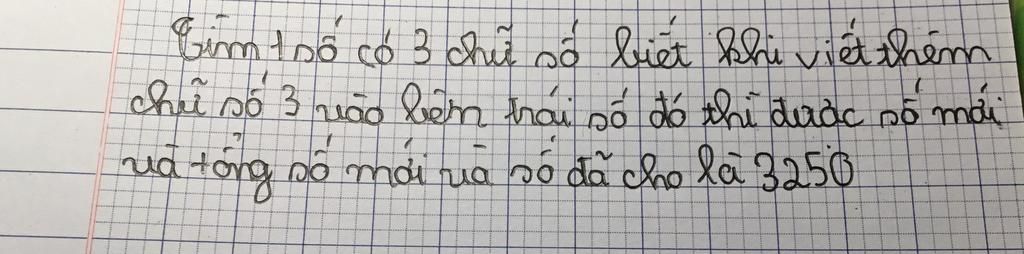 Tìm 1 số có 3 chữ số biết khi viết thêm
chữ số 3 vào bên trái số đó thì được số mới
và tổng số mới và số đã cho là 3250